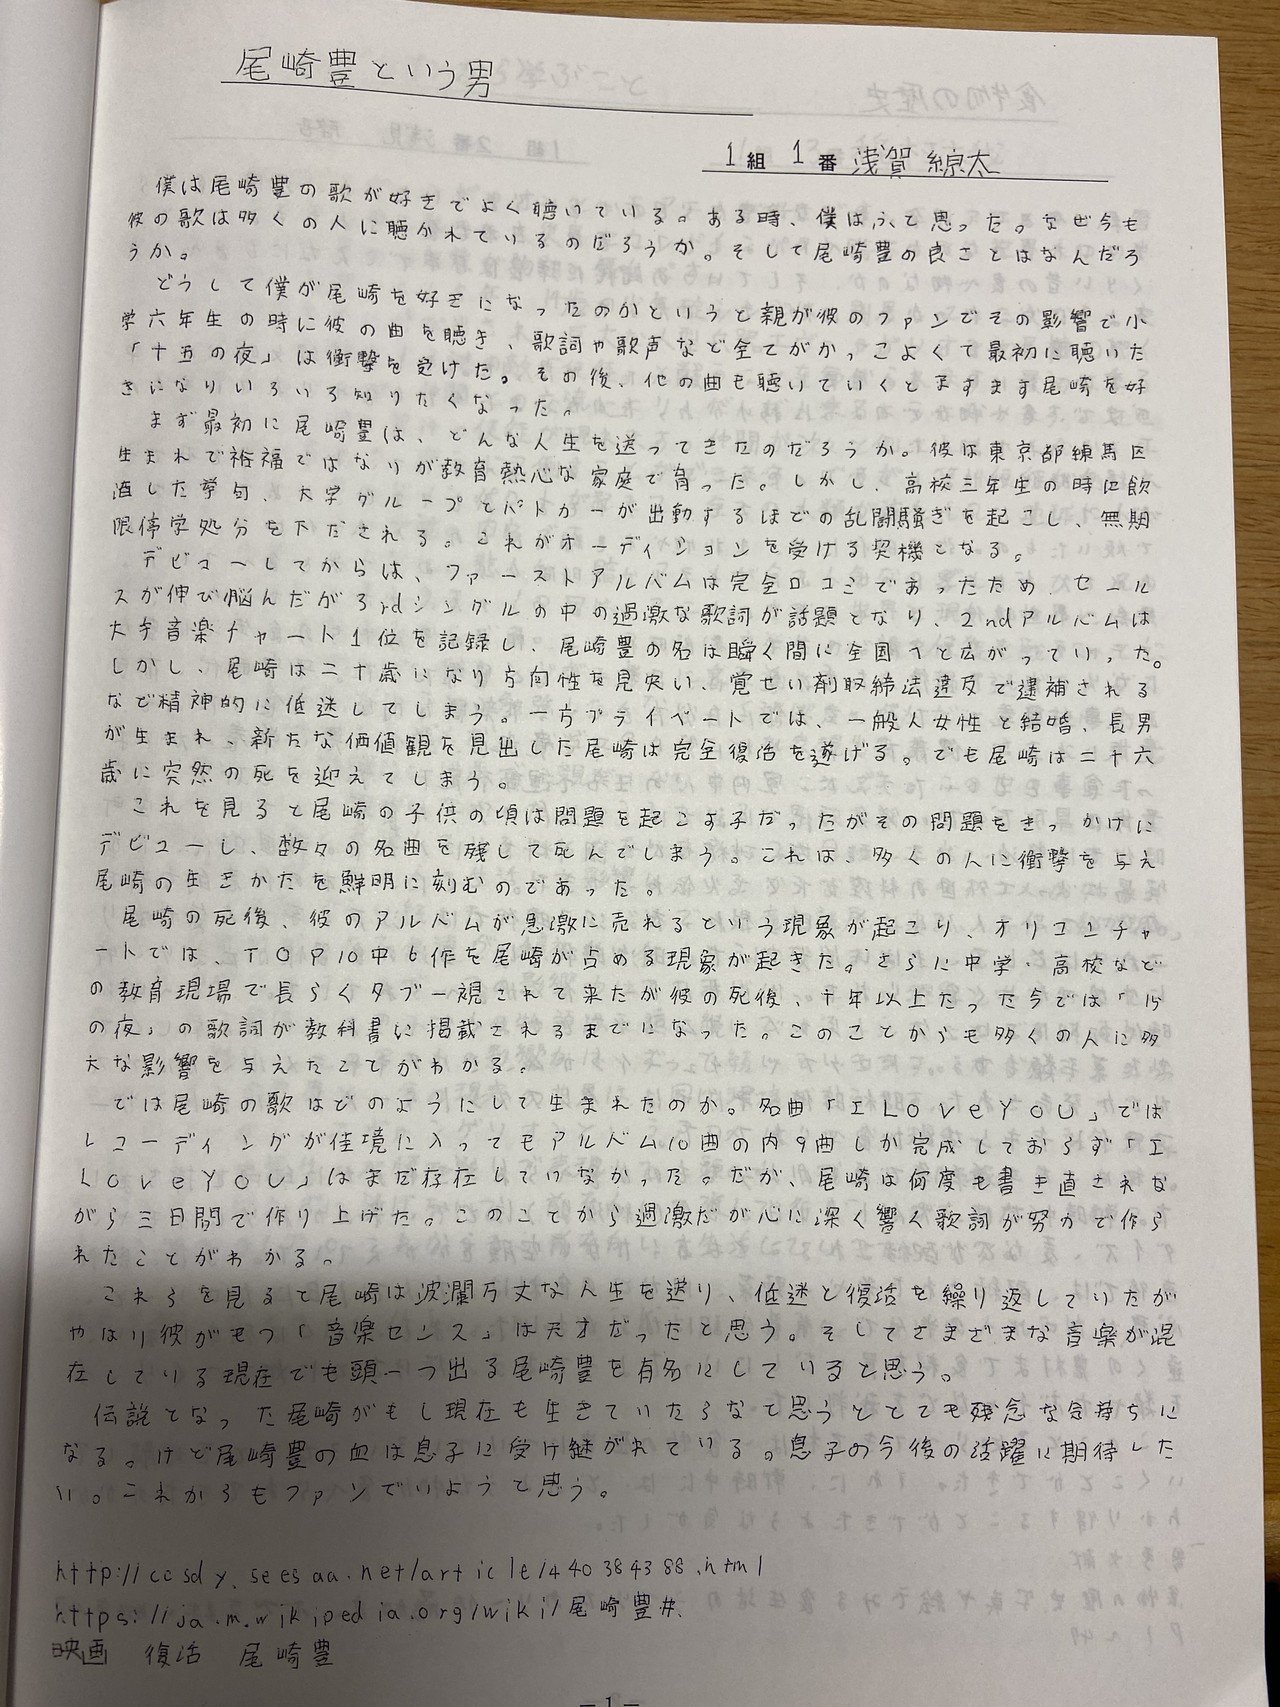 尾崎豊という男
1組 1番 浅賀 綜太
僕は尾崎豊の歌が好きでよく聴いている。ある時、僕はふと思った。なぜ今も
彼の歌は多くの人に聴かれているのだろうか。そして尾崎豊の良さとはなんだろ
うか。
どうして僕が尾崎を好きになったのかというと親が彼のファンでその影響で小
学六年生の時に彼の曲を聴き、歌詞や歌声など全てがかっこよくて最初に聴いた
「十五の夜」は衝撃を受けた。その後、他の曲も聴いていくとますます尾崎を好
きになりいろいろ知りたくなった。
まず最初に尾崎豊は、どんな人生を送ってきたのだろうか。彼は東京都練馬区
生まれで裕福ではなりが教育熱心な家庭で育った。しかし、高校三年生の時に飲
酒した挙句、大学グループとパトカーが出動するほどの乱闘騒ぎを起こし、無期
限停学処分を下だされる。これがオーディションを受ける契機となる。
デビューしてからは、ファーストアルバムは完全口コミであったため、セール
スが伸び悩んだが3rdシングルの中の過激な歌詞が話題となり、2ndアルバムは
大手音楽チャート1位を記録し、尾崎豊の名は瞬く間に全国へと広がっていった。
しかし、尾崎は二十歳になり方向性を見失い、覚せい剤取締法違反で逮捕される
など精神的に低迷してしまう。一方プライベートでは、一般人女性と結婚、長男
が生まれ、新たな価値観を見出した尾崎は完全復活を遂げる。でも尾崎は二十六
歳に突然の死を迎えてしまう。
これを見ると尾崎の子供の頃は問題を起こす子だったがその問題をきっかけに
デビューし、数々の名曲を残して死んでしまう。これは、多くの人に衝撃を与え
尾崎の生きかたを鮮明に刻むのであった。
尾崎の死後、彼のアルバムが急激に売れるという現象が起こり、オリコンチャ
ートでは、TOP10中6作を尾崎が占める現象が起きた。さらに中学・高校など
の教育現場で長らくタブー視されて来たが彼の死後、十年以上たった今では「15
の夜」の歌詞が教科書に掲載されるまでになった。このことからも多くの人に多
大な影響を与えたことがわかる。
では尾崎の歌はどのようにして生まれたのか。名曲「I LoveYOU」では
レコーディングが佳境に入ってもアルバム10曲の内9曲しか完成しておらず「I
LoveYOU」はまだ存在していなかった。だが、尾崎は何度も書き直されな
がら三日間で作り上げた。このことから過激だが心に深く響く歌詞が努力で作ら
れたことがわかる。
これらを見ると尾崎は波瀾万丈な人生を送り、低迷と復活を繰り返していたが
やはり彼がもつ「音楽センス」は天才だったと思う。そしてさまざまな音楽が混
在している現在でも頭一つ出る尾崎豊を有名にしていると思う。
伝説となった尾崎がもし現在も生きていたらなと思うととても残念な気持ちに
なる。けど尾崎豊の血は息子に受け継がれている。息子の今後の活躍に期待した
い。これからもファンでいようと思う。
http://ccsdy.seesaa.net/article/440384388.html
https://ja.m.wikipedia.org/wiki/尾崎豊#.
映画 復活 尾崎豊
− 1 −